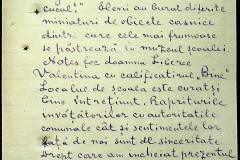 cucul!" Elevii au lucrat diferite
miniaturi de obiecte casnice
dintre care cele mai frumoase
se păstrează în muzeul școalei.
Notes foc doamna Licerec
Valentina cu calificativul "Bine"
Localul de școală este curat și
bine întreținut. Raporturile
învățătorilor cu autoritatile
comunale cât și sentimentele lor
față de noi sunt de sinceritate
Drept care am încheiat prezentul